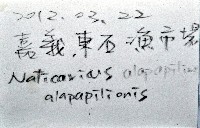 2012.03.22
嘉義.東石漁市場
Naticarius alapapilionis
alapapilionis